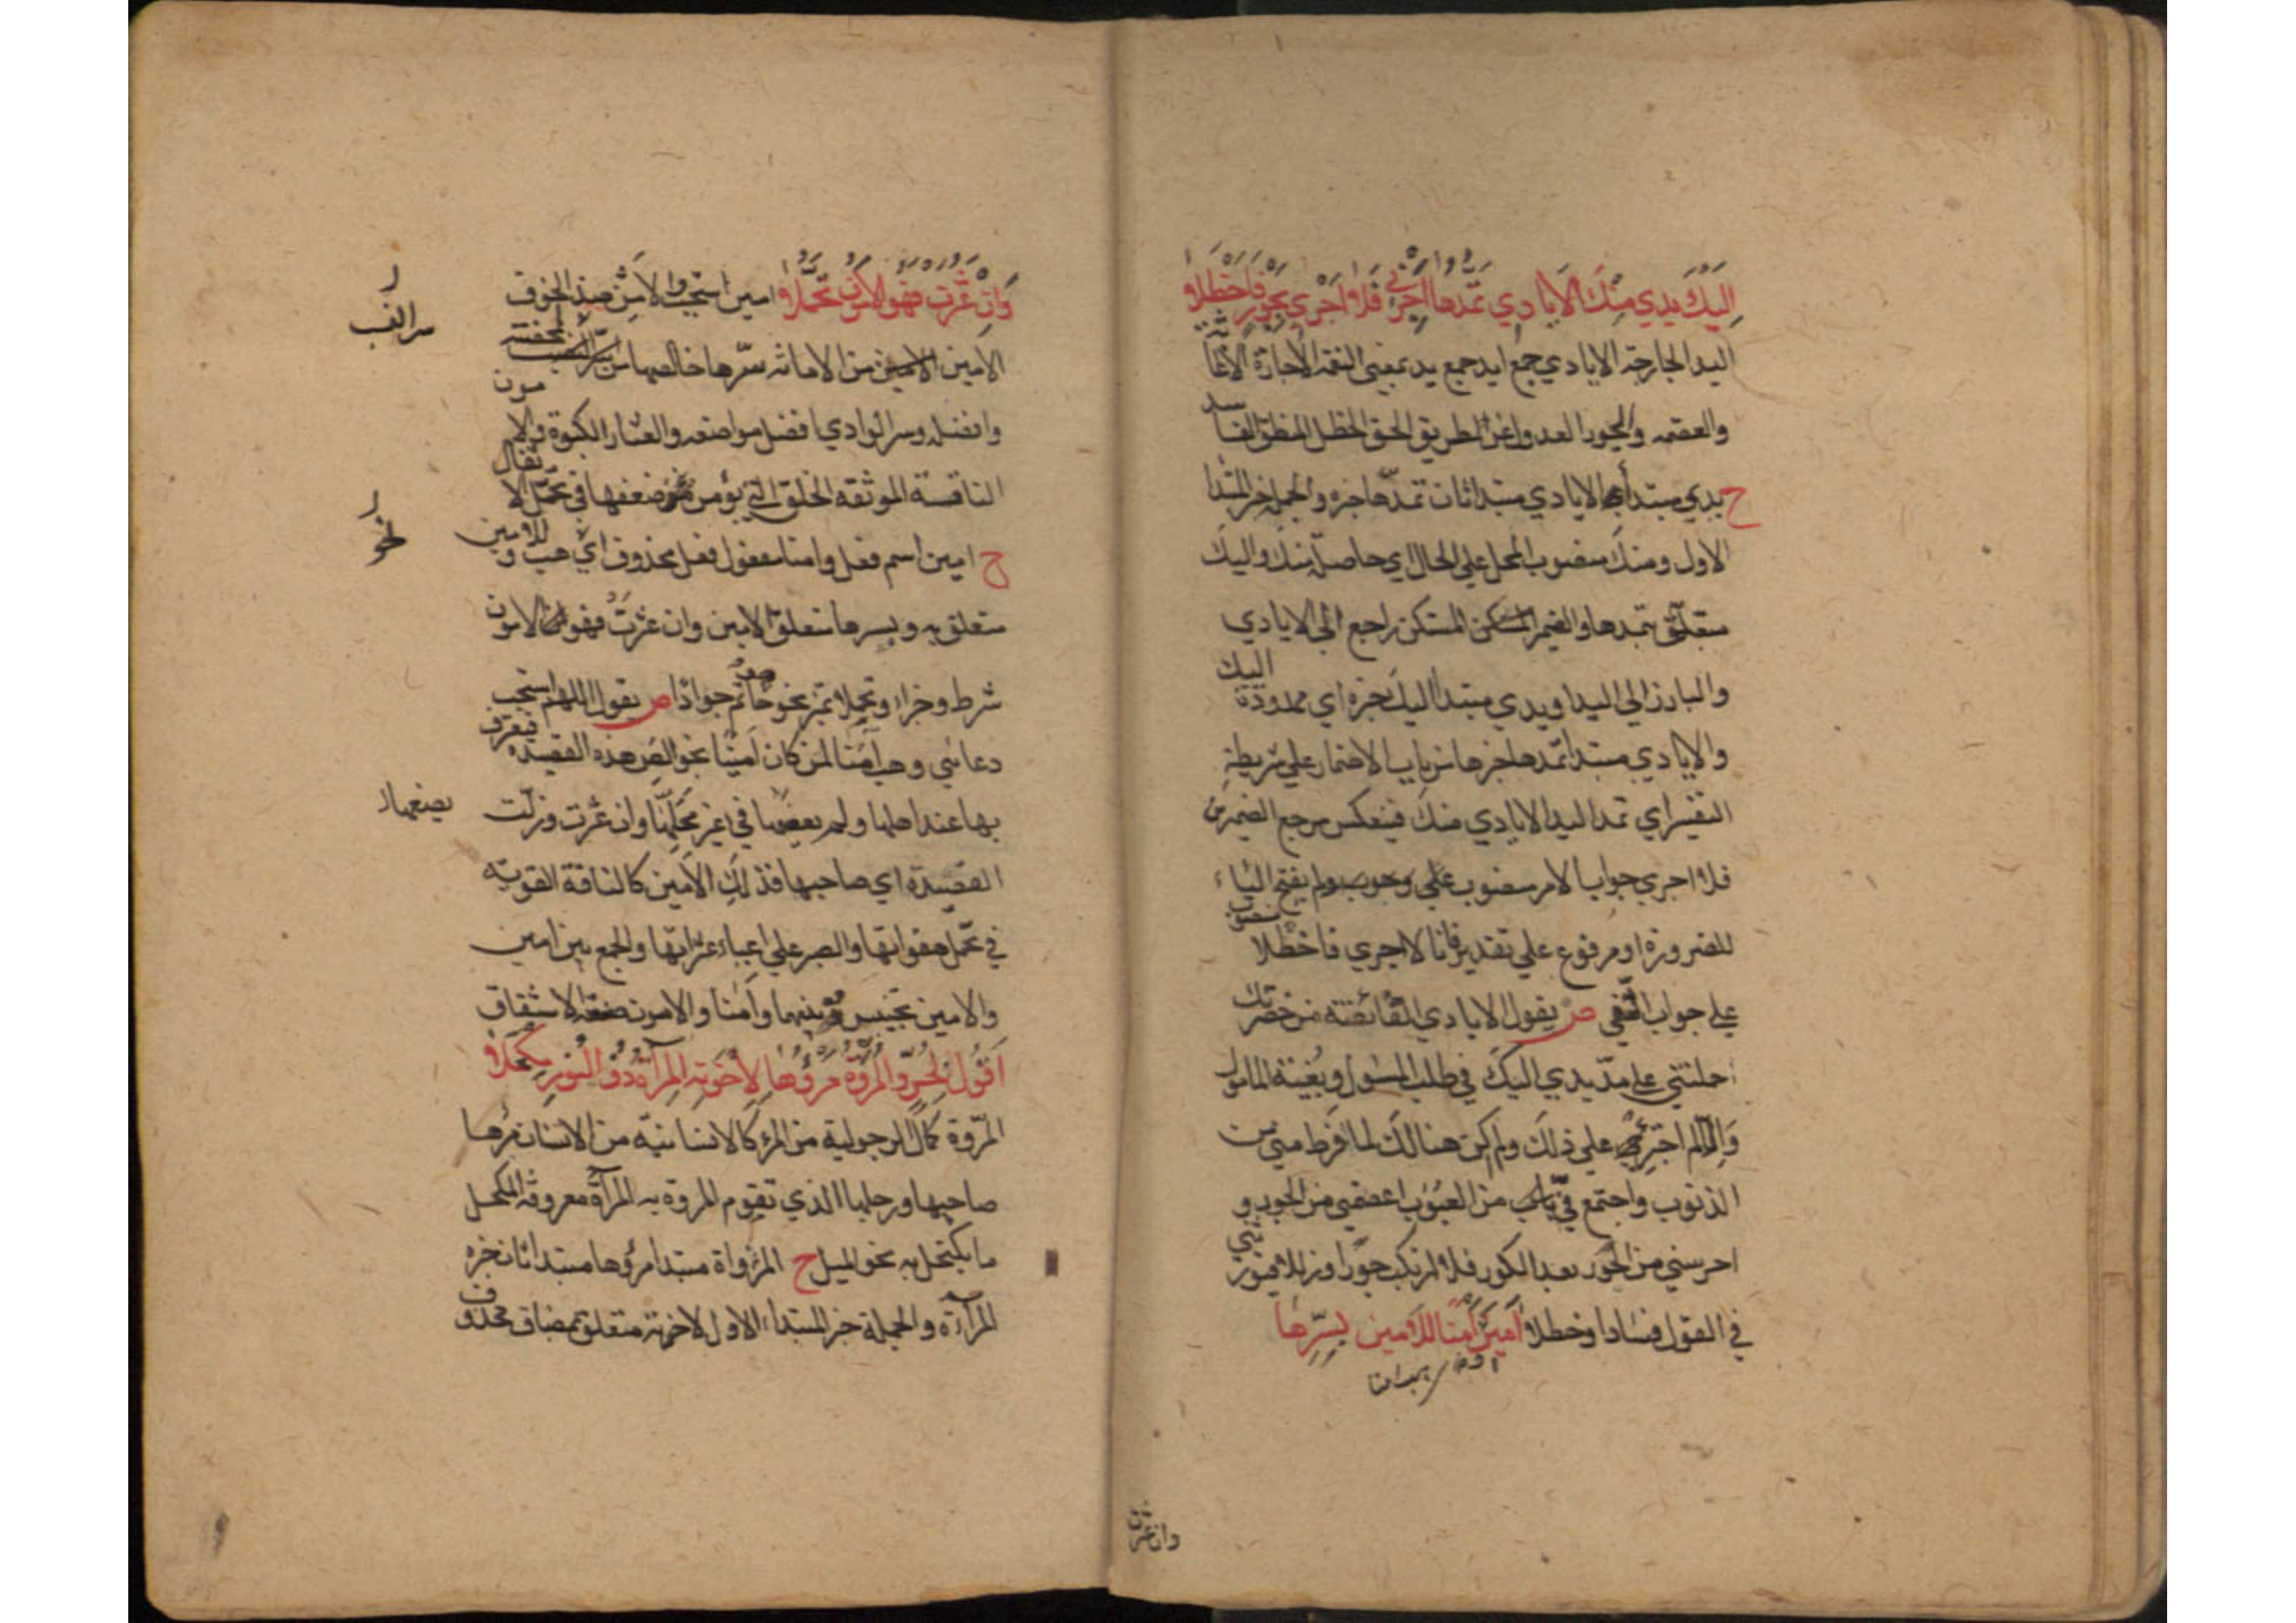 اِليكَ يدي مِنكَ الاَيادي تمدها اجرني فلا اجري بجور فاخطلا
اليد الجارحة الايادي جمع ايد جمع يد بمعني النعمة الاجارة الاغاثة
والعصمة والجور العدول عن الطريق الحق الخطل المنطق الفاسد
ح يدي مبتدأ الايادي مبتدا ثان تمدّها خبره والجملة خبر المبتدا
الاول ومنك منصوب المحل علي الحال اي حاصلة منك واليك
متعلق بتمدها والضمير المستكن راجع الي الايادي
والبارز الي اليد او يدي مبتدا اليك خبره اي ممدودة اليك
والايادي مبتدا تمدها خبرها من باب الاضمار علي شريطة
التفسير اي تمد اليد الايادي منك فينعكس مرجع الضميرين
فلا اجري جواب الامر منصوب علي وجوب ولم يفتح الياء
للضرورة او مرفوع علي تقدير فانا لا اجري فاخطلا منصوب
علي جواب النفي ص يقول الايادي الفائضة من حضرتك
حملتني علي مدّ يدي اليك في طلب المسئول وبغية المامول
والا لم اجترئ علي ذلك ولم اكن هنالك لما فرط مني من
الذنوب واجتمع فيّ من العيوب اعصمني من الجور و
احرسني من الحور بعد الكور فلا ارتكب جورا وزللا فيورثني
في القول فسادا وخطلا امين اَمنا للامين بسِرّها
اي هب امنا
وان عثرت
وَاِن عثرت فهو الامون تحمّلا امين استجب والامن ضد الخوف
الامين من الامانة سرّها خالصها سر النسب محضه
وافضله وسر الوادي افضل مواضعه والعثار الكبوة والامون
الناقة الموثقة الخلق التي يؤمن ضعفها في تحمّل الاثقال
ح امين اسم فعل وامنا مفعول فعل محذوف اي هب وللامين
متعلق به وبسرها متعلق الامين وان عثرت فهو الامون
شرط وجزاء وتحملا تميز نحو حاتم جوادا ص يقول اللهم استجب
دعائي وهب اَمنا لمن كان اَمينا بخوالص هذه القصيده فيعرف
بها عند اهلها ولم يضعها في غير محلّها وان عثرت وزلت
القصيده اي صاحبها فذلك الاَمين كالناقة القوية
في تحمّل هفواتها والصبر علي اعباء عثراتها والجمع بين امين
والامين تجنيس وبينهما وامنا والامون صنعة الاشتقاق
اَقول لحُرّ والمروّة مرؤها لاِخوته المرآة ذو النور مكحلا
المروّة كمال الرجولية من المرء كالانسانية من الانسان مرؤها
صاحبها ورجلها الذي تقوم المروة به المرآة معروفة المكحل
ما يكتحل به نحو الميل ح المرؤاة مبتدا مرؤها مبتدا ثان خبره
المرآة والجملة خبر المبتدا الاول لاخوته متعلق بمضاف محذوف